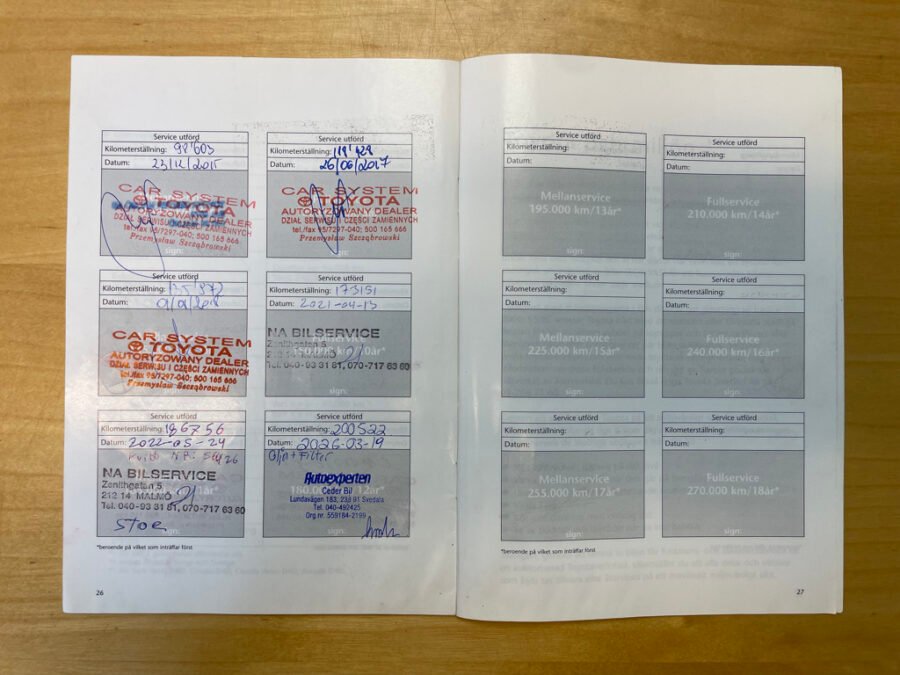 Service utförd
Kilometerställning: 98'603
Datum: 23/12/2015
CAR SYSTEM
TOYOTA
AUTORYZOWANY DEALER
DZIAŁ SERWISU I CZĘŚCI ZAMIENNYCH
tel./fax 95/7297-040; 500 165 666
Przemysław Szcząbrowski
sign:
Service utförd
Kilometerställning: 119'428
Datum: 26/06/2017
CAR SYSTEM
TOYOTA
AUTORYZOWANY DEALER
DZIAŁ SERWISU I CZĘŚCI ZAMIENNYCH
tel./fax 95/7297-040; 500 165 666
Przemysław Szcząbrowski
sign:
Service utförd
Kilometerställning:
Datum:
CAR SYSTEM
TOYOTA
AUTORYZOWANY DEALER
DZIAŁ SERWISU I CZĘŚCI ZAMIENNYCH
tel./fax 95/7297-040; 500 165 666
Przemysław Szcząbrowski
Service utförd
Kilometerställning: 173151
Datum: 2021-04-13
NA BILSERVICE
Fullservice
Zenithgatan 5
150.000 km/10år*
212 14 MALMÖ
Tel. 040-93 31 81, 070-717 63 60
sign:
Service utförd
Kilometerställning: 186756
Datum: 2022-05-24
NA BILSERVICE
Zenithgatan 5
212 14 MALMÖ
Tel. 040-93 31 81, 070-717 63 60
Service utförd
Kilometerställning: 200522
Datum: 2026-03-19
Olja + Filter
Autoexperten
180.000 km/12år*
Ceder Bil
Lundavägen 183, 233 91 Svedala
Tel. 040-492425
Org.nr. 559184-2199
sign:
*beroende på vilket som inträffar först.
26
Service utförd
Kilometerställning:
Datum:
Mellanservice
195.000 km/13år*
sign:
Service utförd
Kilometerställning:
Datum:
Fullservice
210.000 km/14år*
sign:
Service utförd
Kilometerställning:
Datum:
Mellanservice
225.000 km/15år*
sign:
Service utförd
Kilometerställning:
Datum:
Fullservice
240.000 km/16år*
sign:
Service utförd
Kilometerställning:
Datum:
Mellanservice
255.000 km/17år*
sign:
Service utförd
Kilometerställning:
Datum:
Fullservice
270.000 km/18år*
sign:
*beroende på vilket som inträffar först.
27